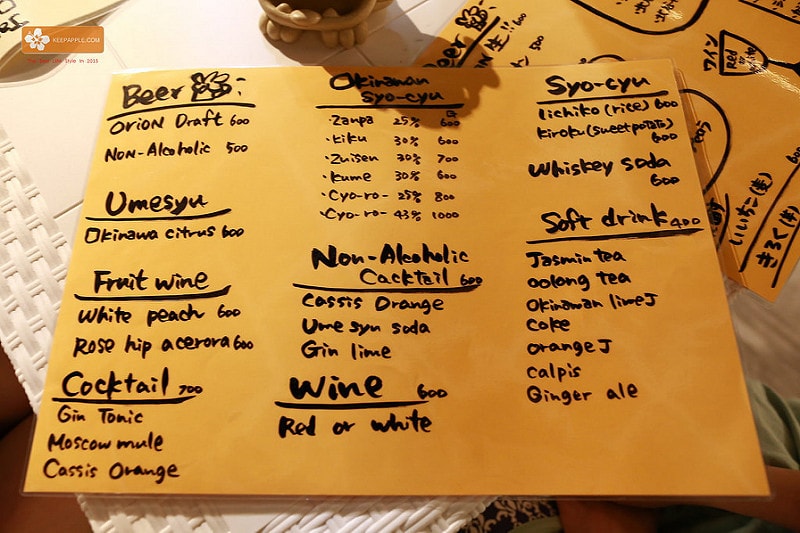 KEEPAPPLE.COM
Beer:
Orion Draft 600
Non-Alcoholic 500
Umesyu
Okinawa citrus 600
Fruit wine
White peach 600
Rose hip acerora 600
Cocktail 700
Gin Tonic
Moscow mule
Cassis Orange
Okinawan
Syo-cyu
・Zanpa 25% 600
・kiku 30% 600
・Zuisen 30% 700
・Kume 30% 600
・Cyo-ro- 25% 800
・Cyo-ro- 43% 1000
Non-Alcoholic
Cacktail 600
Cassis Orange
Ume syu soda
Gin lime
Wine 600
Red or white
Syo-cyu
Iichiko (rice) 600
Kiroku (sweet potato)
600
Whiskey soda
600
Soft drink 400
Jasmin tea
oolong tea
Okinawan lime J
coke
orange J
calpis
Ginger ale
Beer
ワイン
Red
いいちこ(麦)
きろく(芋)
600